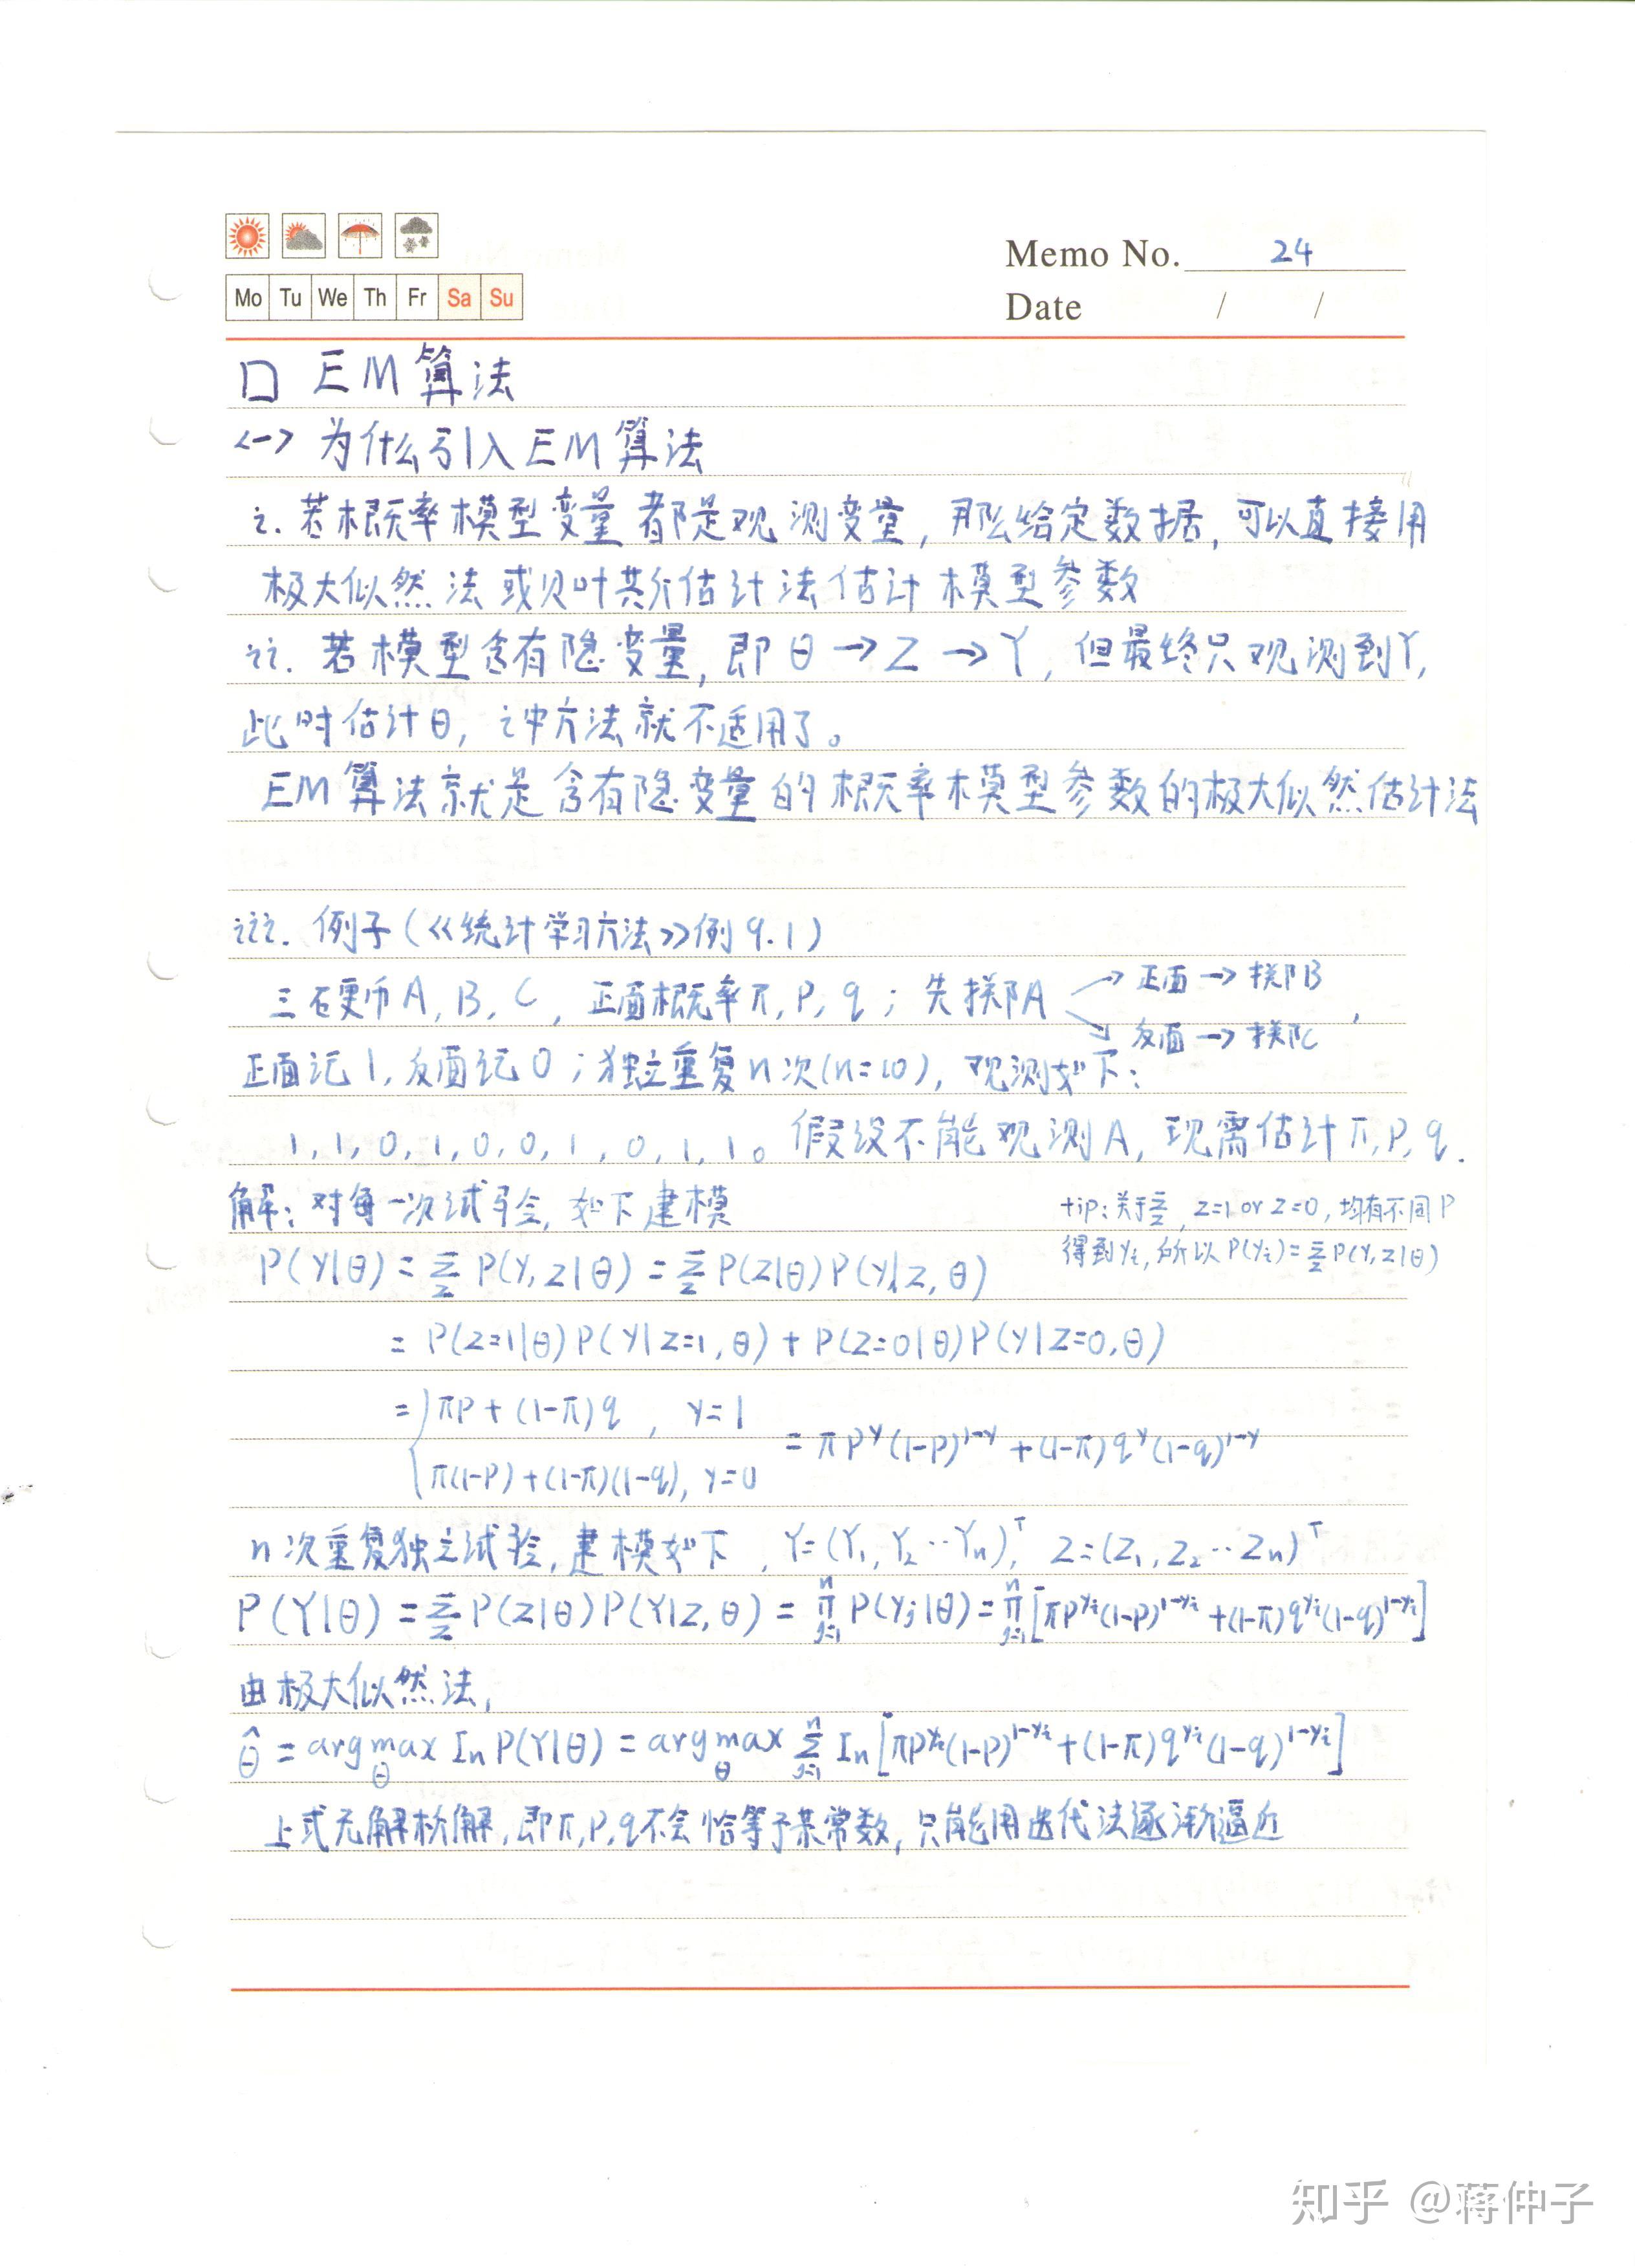 Mo Tu We Th Fr Sa Su
Memo No. 24
Date / /
口 EM算法
<一> 为什么引入EM算法
i. 若概率模型变量都是观测变量, 那么给定数据, 可以直接用
极大似然法或贝叶斯估计法估计模型参数
ii. 若模型含有隐变量, 即θ→Z→Y, 但最终只观测到Y,
此时估计θ, i中方法就不适用了。
EM算法就是含有隐变量的概率模型参数的极大似然估计法
iii. 例子(《统计学习方法》例9.1)
三石更币A, B, C, 正面概率π, P, q; 先掷A
→ 正面 → 掷B
↘ 反面 → 掷C ,
正面记1, 反面记0; 独立重复n次(n=10), 观测如下:
1, 1, 0, 1, 0, 0, 1, 0, 1, 1。假设不能观测A, 现需估计π, P, q.
解: 对每一次试验, 如下建模
tip: 关于Σ_Z, Z=1 or Z=0, 均有不同P
得到yᵢ, 所以P(yᵢ)=Σ_Z P(Y,Z|θ)
P(Y|θ) = Σ_Z P(Y,Z|θ) = Σ_Z P(Z|θ)P(Y|Z,θ)
= P(Z=1|θ)P(Y|Z=1,θ) + P(Z=0|θ)P(Y|Z=0,θ)
= { πP + (1-π)q , y=1
π(1-P) + (1-π)(1-q), y=0
= πP^y(1-P)^{1-y} + (1-π)q^y(1-q)^{1-y}
n次重复独立试验, 建模如下, Y=(Y₁,Y₂··Yₙ)ᵀ, Z=(Z₁,Z₂··Zₙ)ᵀ
P(Y|θ) = Σ_Z P(Z|θ)P(Y|Z,θ) = ∏_{j=1}^n P(yⱼ|θ) = ∏_{j=1}^n [πP^{yᵢ}(1-P)^{1-yᵢ} + (1-π)q^{yᵢ}(1-q)^{1-yᵢ}]
由极大似然法,
θ̂ = argmax_θ In P(Y|θ) = argmax_θ Σ_{j=1}^n In [πP^{yᵢ}(1-P)^{1-yᵢ} + (1-π)q^{yᵢ}(1-q)^{1-yᵢ}]
上式无解析解, 即π, P, q不会恰等于某常数, 只能用迭代法逐渐逼近
知乎 @蒋仲子